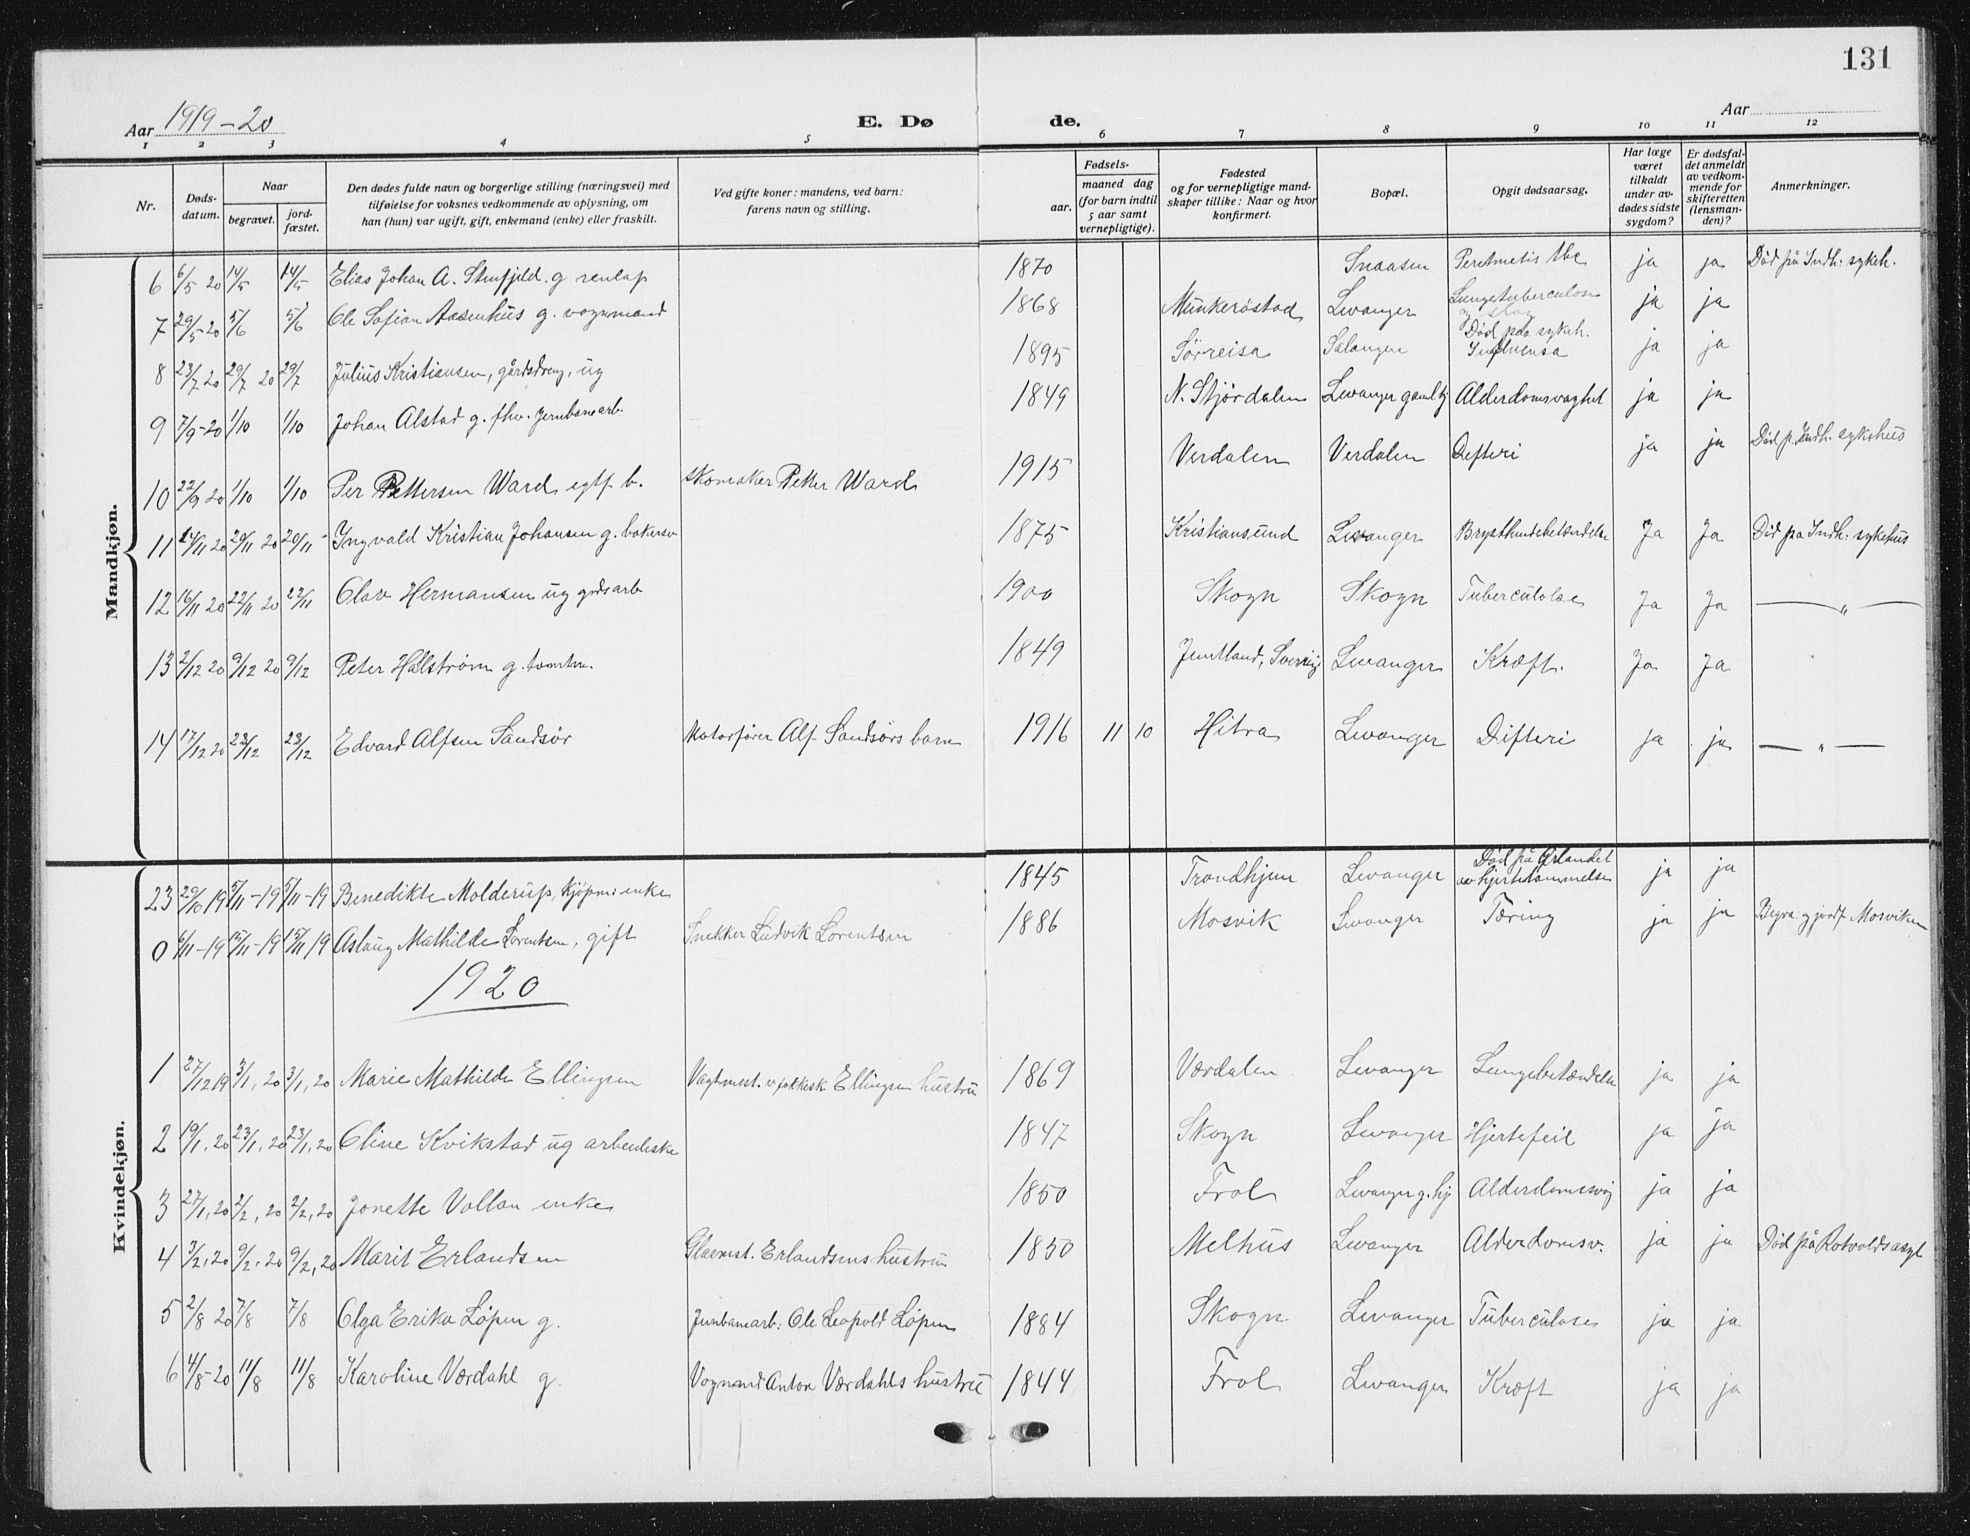 131
Aar 1919-20 E. Døde. Aar
1 2 3 4 5 6 7 8 9 10 11 12
Nr. Døds-datum. Naar begravet. jord-fæstet. Den dødes fulde navn og borgerlige stilling (næringsvei) med tilføielse for voksnes vedkommende av oplysning, om han (hun) var ugift, gift, enkemand (enke) eller fraskilt. Ved gifte koner: mandens, ved barn: farens navn og stilling. Fødsels- aar. maaned dag (for barn indtil 5 aar samt vernepligtige). Fødested og for vernepligtige mand-skaper tillike: Naar og hvor konfirmert. Bopæl. Opgit dødsaarsag. Har læge været tilkaldt under av-dødes sidste sygdom? Er dødsfal-det anmeldt av vedkom-mende for skifteretten (lensman-den)? Anmerkninger.
Mandkjøn.
6 6/5 20 14/5 14/5 Elias Johan A. g renlap 1870 Snaasen tbc ja ja Død på Indh. sykeh.
7 29/5-20 5/6 5/6 Ole Sofian Aasenhus g. vognmand 1868 Munkerøstad Levanger Lungetuberculose og slag Død paa sykeh. ja ja
8 23/7 20 29/7 20 29/7 Julius Kristiansen, gårdsdreng, ug 1895 Sørreisa Salangen Influensa ja ja
9 7/9-20 1/10 1/10 Johan Alstad g. fhv. Jernbanearb. 1849 N. Stjørdalen Levanger gamlhj Alderdomsvaghet ja ja
10 22/9 20 1/10 1/10 Per Pettersen Ward egtf b. skomaker Petter Ward 1915 Verdalen Verdalen Difteri ja ja Død p. Indh. sykehus
11 14/11 20 20/11 20 20/11 Ingvald Kristian Johansen g. bakersv 1875 Kristiansund Levanger Brysthindebetændelse Ja Ja Død pa Indh. sykehus
12 16/11 20 22/11 20 22/11 Olav Hermansen ug grdsarb 1900 Skogn Skogn Tuberculose Ja Ja — " —
13 2/12 20 9/12 20 9/12 Peter Hallstrøm g. tømrm. 1849 Jemtland, Sverrig Levanger Kræft. Ja Ja
14 17/12 20 23/12 23/12 Edvard Alfsen Sandsør Motorfører Alf Sandsørs barn 1916 11 10 Hitra Levanger Difteri ja ja — " —
Kvindekjøn.
23 29/10 19 5/11-19 5/11-19 Benedikte Molderup, kjøpm: enke 1845 Trondhjem Levanger Død på Ørlandet av hjertelammelse ja ja
0 6/11-19 15/11-19 15/11 19 Aslaug Mathilde Lorentsen, gift Snekker Ludvik Lorentsen 1886 Mosvik Levanger Tæring ja ja Begra og jordf Mosviken
1920
1 27/12 19 3/1, 20 3/1, 20 Marie Mathilde Ellingsen Vagtmest. Ellingsen hustru 1869 Værdalen Levanger Lungebetændelse ja ja
2 19/1, 20 23/1, 20 23/1, 20 Oline Kvikstad ug arbeiderske 1847 Skogn Levanger Hjertefeil ja ja
3 27/1, 20 2/2, 20 2/2, 20 Jonette Vollan enke 1850 Frol Levanger g. hj Alderdomsvag ja ja
4 3/2, 20 9/2, 20 9/2, 20 Marit Erlandsen Glasmest. Erlandsens hustru 1850 Melhus Levanger Alderdomsv. ja ja Død på Rotvolds asyl
5 2/8 20 7/8 7/8 Olga Erika Løpen g. Jernbanearb: Ole Leopold Løpen 1884 Skogn Levanger Tuberculose ja ja
6 4/8-20 11/8 11/8 Karoline Værdahl g. Vognmand Anton Værdahls hustru 1844 Frol Levanger Kræft ja ja